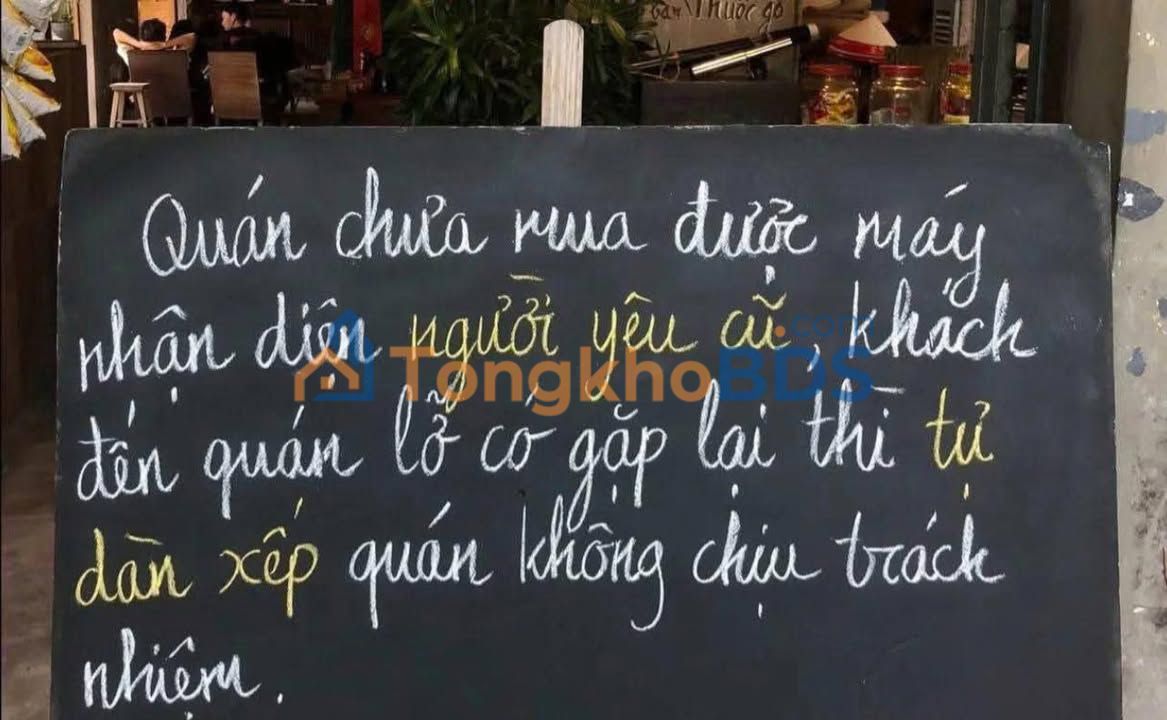 bán Thuốc gò
Quán chưa mua được máy
nhận diện người yêu cũ, khách
đến quán lỡ có gặp lại thì tự
dàn xếp quán không chịu trách
nhiệm.
TongkhoBDS.com